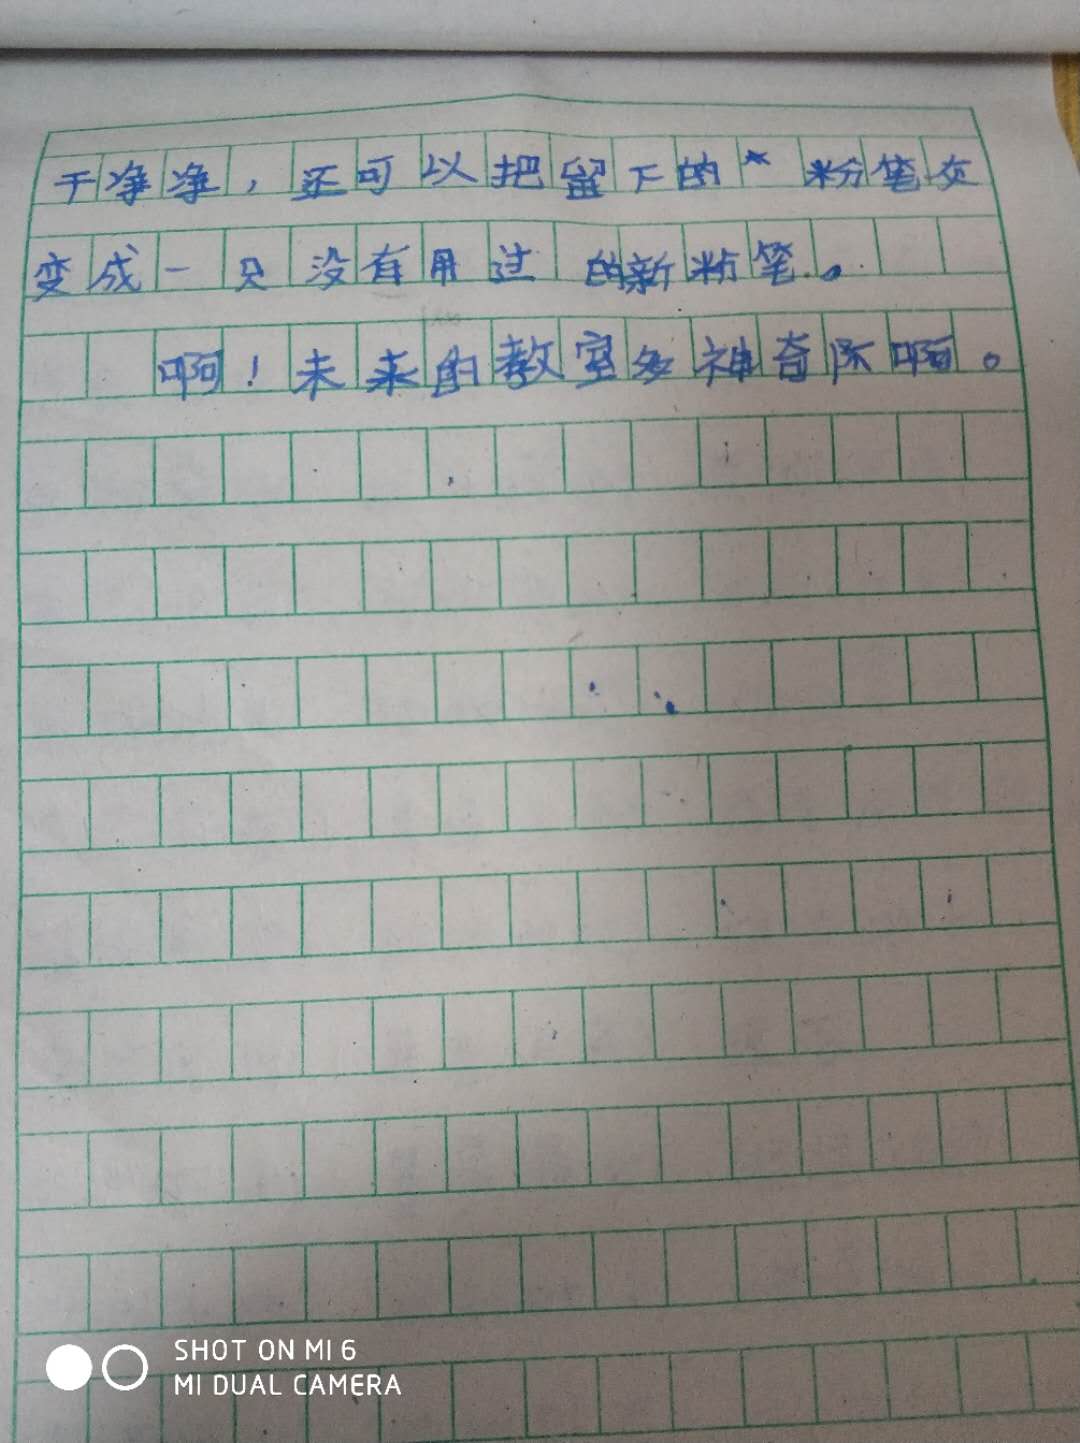 干净净，还可以把留下的粉笔灰
变成一只没有用过的新粉笔。
啊！未来的教室多神奇啊。
SHOT ON MI 6
MI DUAL CAMERA